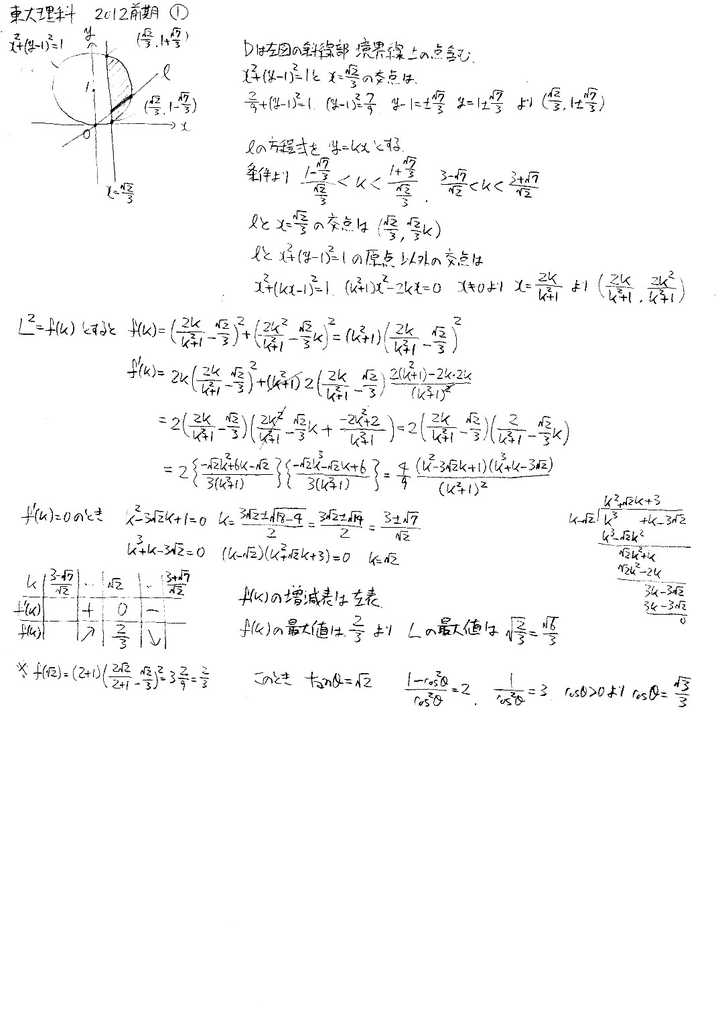 東大理科 2012前期 ①
x²+(y-1)²=1
y
(√2/3, 1+√7/3)
l
1
(√2/3, 1-√7/3)
0
x
x=√2/3
Dは左図の斜線部 境界線上の点含む.
x²+(y-1)²=1と x=√2/3の交点は.
2/9+(y-1)²=1. (y-1)²=7/9 y-1=±√7/3 y=1±√7/3 より (√2/3, 1±√7/3)
lの方程式を y=kxとする.
条件より (1-√7/3)/(√2/3) < k < (1+√7/3)/(√2/3). (3-√7)/√2 < k < (3+√7)/√2
lと x=√2/3 の交点は (√2/3, √2/3 k)
lと x²+(y-1)²=1 の原点以外の交点は
x²+(kx-1)²=1. (k²+1)x²-2kx=0 x≠0より x=2k/(k²+1) より (2k/(k²+1), 2k²/(k²+1))
L²=f(k) とすると f(k)=(2k/(k²+1)-√2/3)²+(2k²/(k²+1)-√2/3 k)²=(k²+1)(2k/(k²+1)-√2/3)²
f'(k)=2k(2k/(k²+1)-√2/3)²+(k²+1)2(2k/(k²+1)-√2/3) (2(k²+1)-2k・2k)/(k²+1)²
=2(2k/(k²+1)-√2/3)(2k²/(k²+1)-√2/3 k+(-2k²+2)/(k²+1))=2(2k/(k²+1)-√2/3)(2/(k²+1)-√2/3 k)
=2{(-√2k²+6k-√2)/3(k²+1)}{(-√2k³-√2k+6)/3(k²+1)}=4/9 (k²-3√2k+1)(k³+k-3√2)/(k²+1)²
f'(k)=0のとき x²-3√2k+1=0 k=(3√2±√(18-4))/2=(3√2±√14)/2=(3±√7)/√2
k³+k-3√2=0 (k-√2)(k²+√2k+3)=0 k=√2
k²+√2k+3
k-√2 ) k³ +k-3√2
k³-√2k²
√2k²+k
√2k²-2k
3k-3√2
3k-3√2
0
k (3-√7)/√2 ‥ √2 ‥ (3+√7)/√2
f'(k) + 0 -
f(k) ↗ 2/3 ↘
f(k)の増減表は左表.
f(k)の最大値は 2/3 より Lの最大値は √(2/3)=√6/3
※ f(√2)=(2+1)(2√2/(2+1)-√2/3)²=3 2/9=2/3
このとき tanθ=√2 (1-cos²θ)/cos²θ=2. 1/cos²θ=3 cosθ>0より cosθ=√3/3